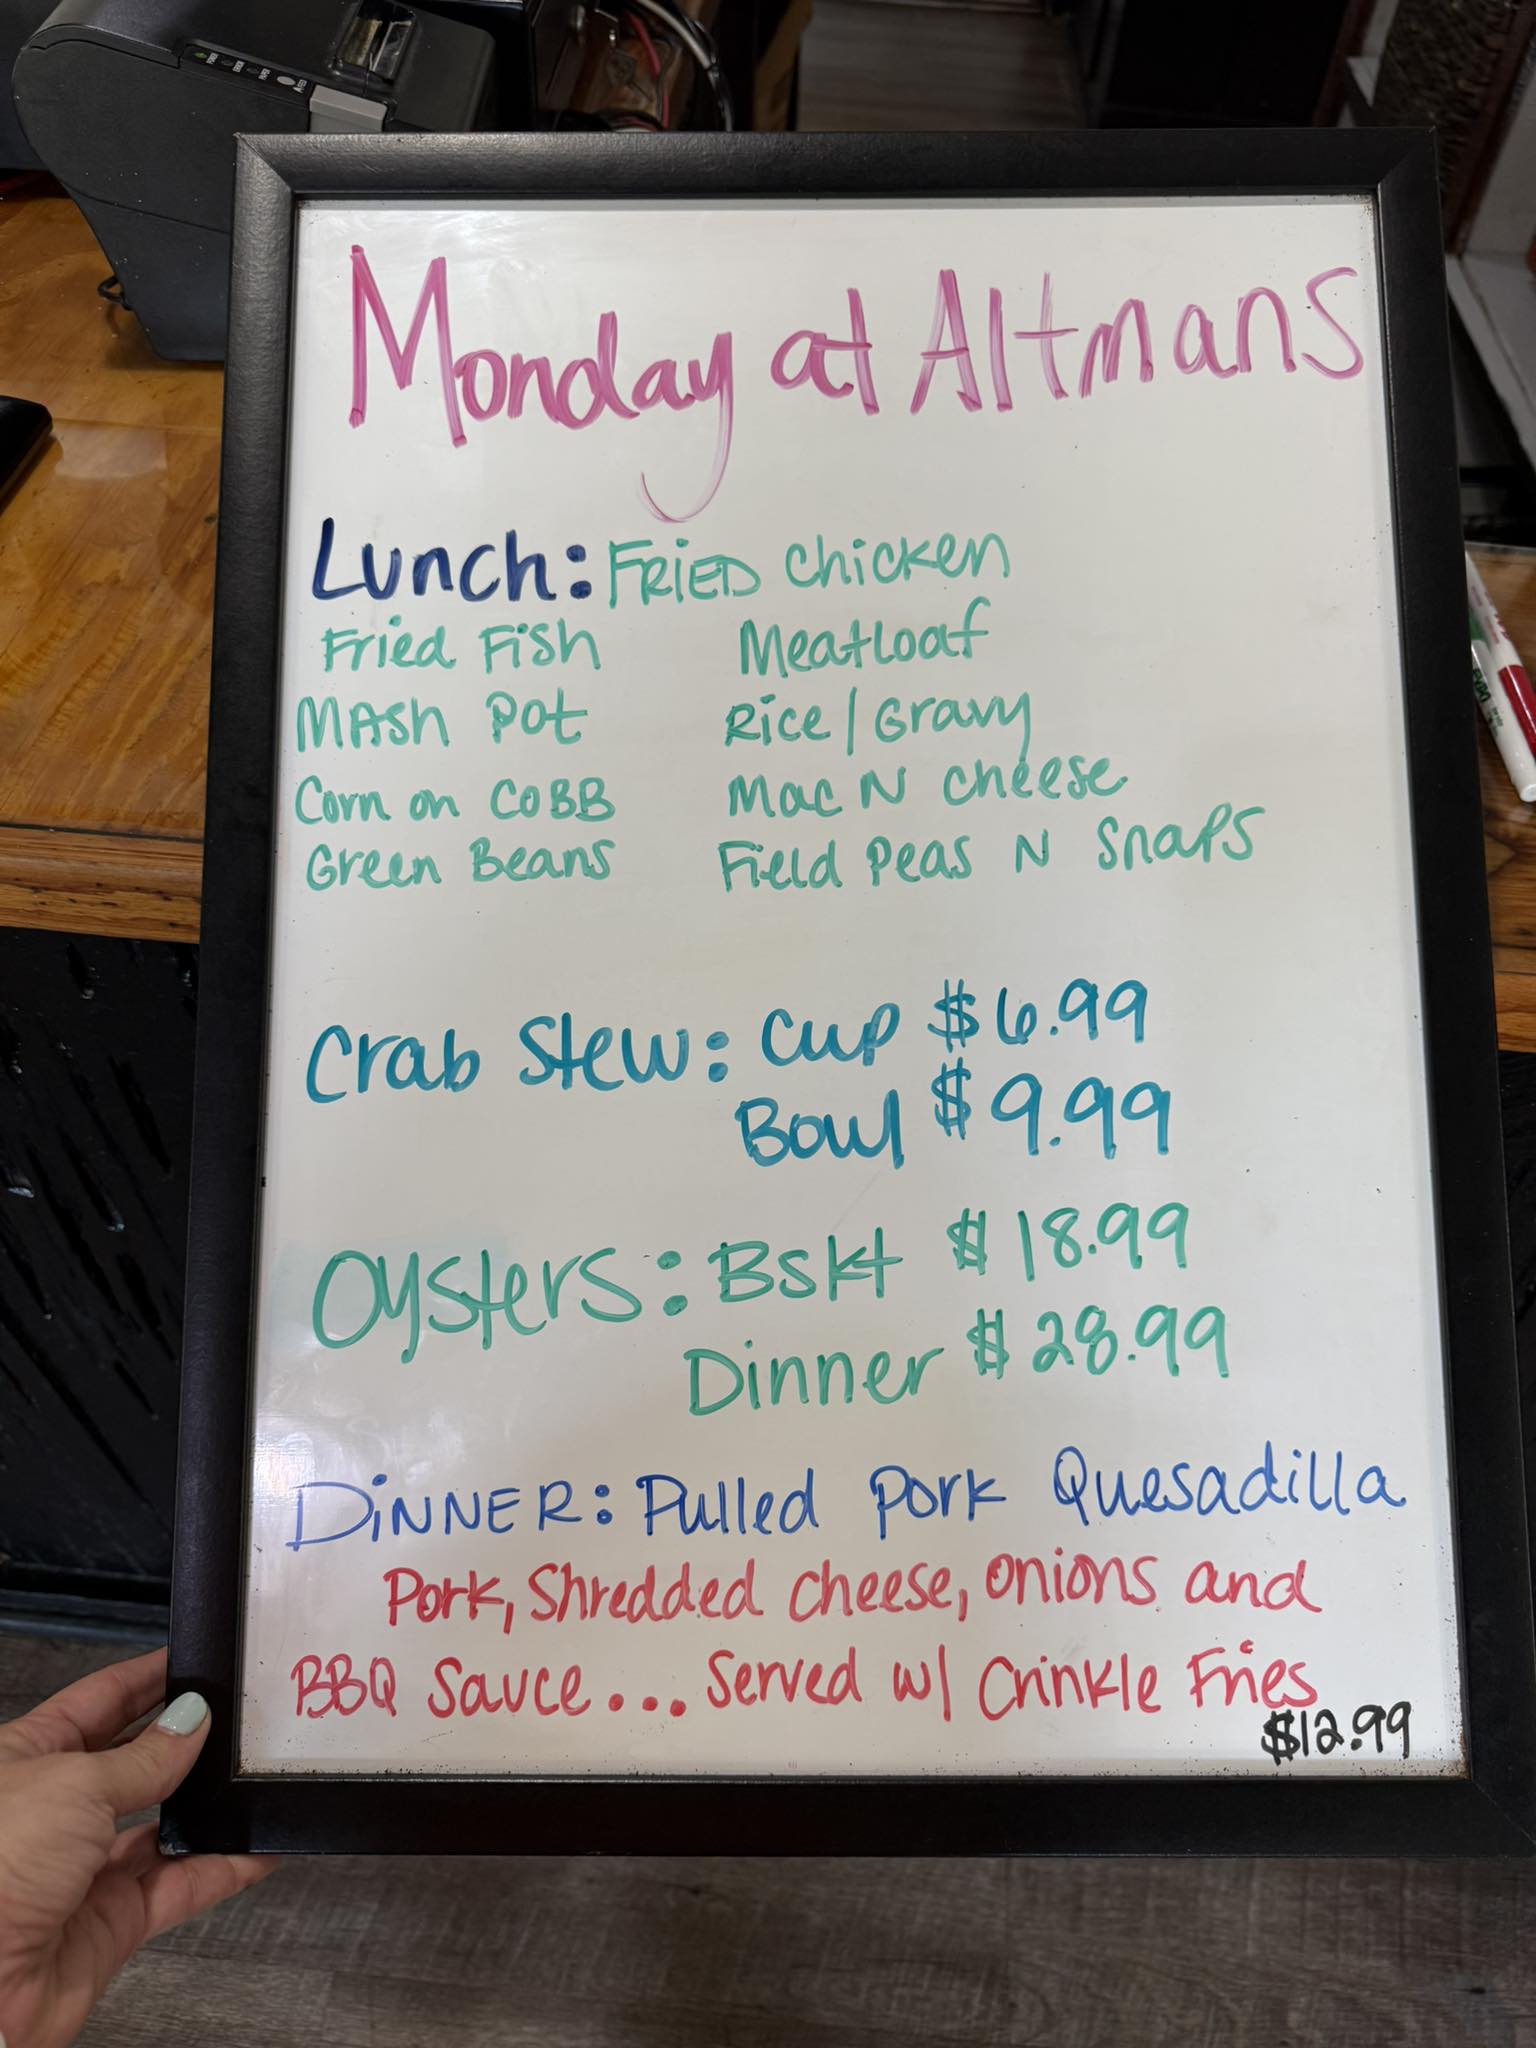 POWER ERROR PAPER FEED
Monday at Altmans
Lunch: FRIED Chicken
Fried Fish Meatloaf
MASh Pot Rice/Gravy
Corn on CoBB Mac N Cheese
Green Beans Field Peas N Snaps
Crab Stew: Cup $6.99
Bowl $9.99
Oysters: Bskt $18.99
Dinner $28.99
DiNNER: Pulled Pork Quesadilla
Pork, Shredded Cheese, Onions and
BBQ Sauce... Served w/ Crinkle Fries
$12.99